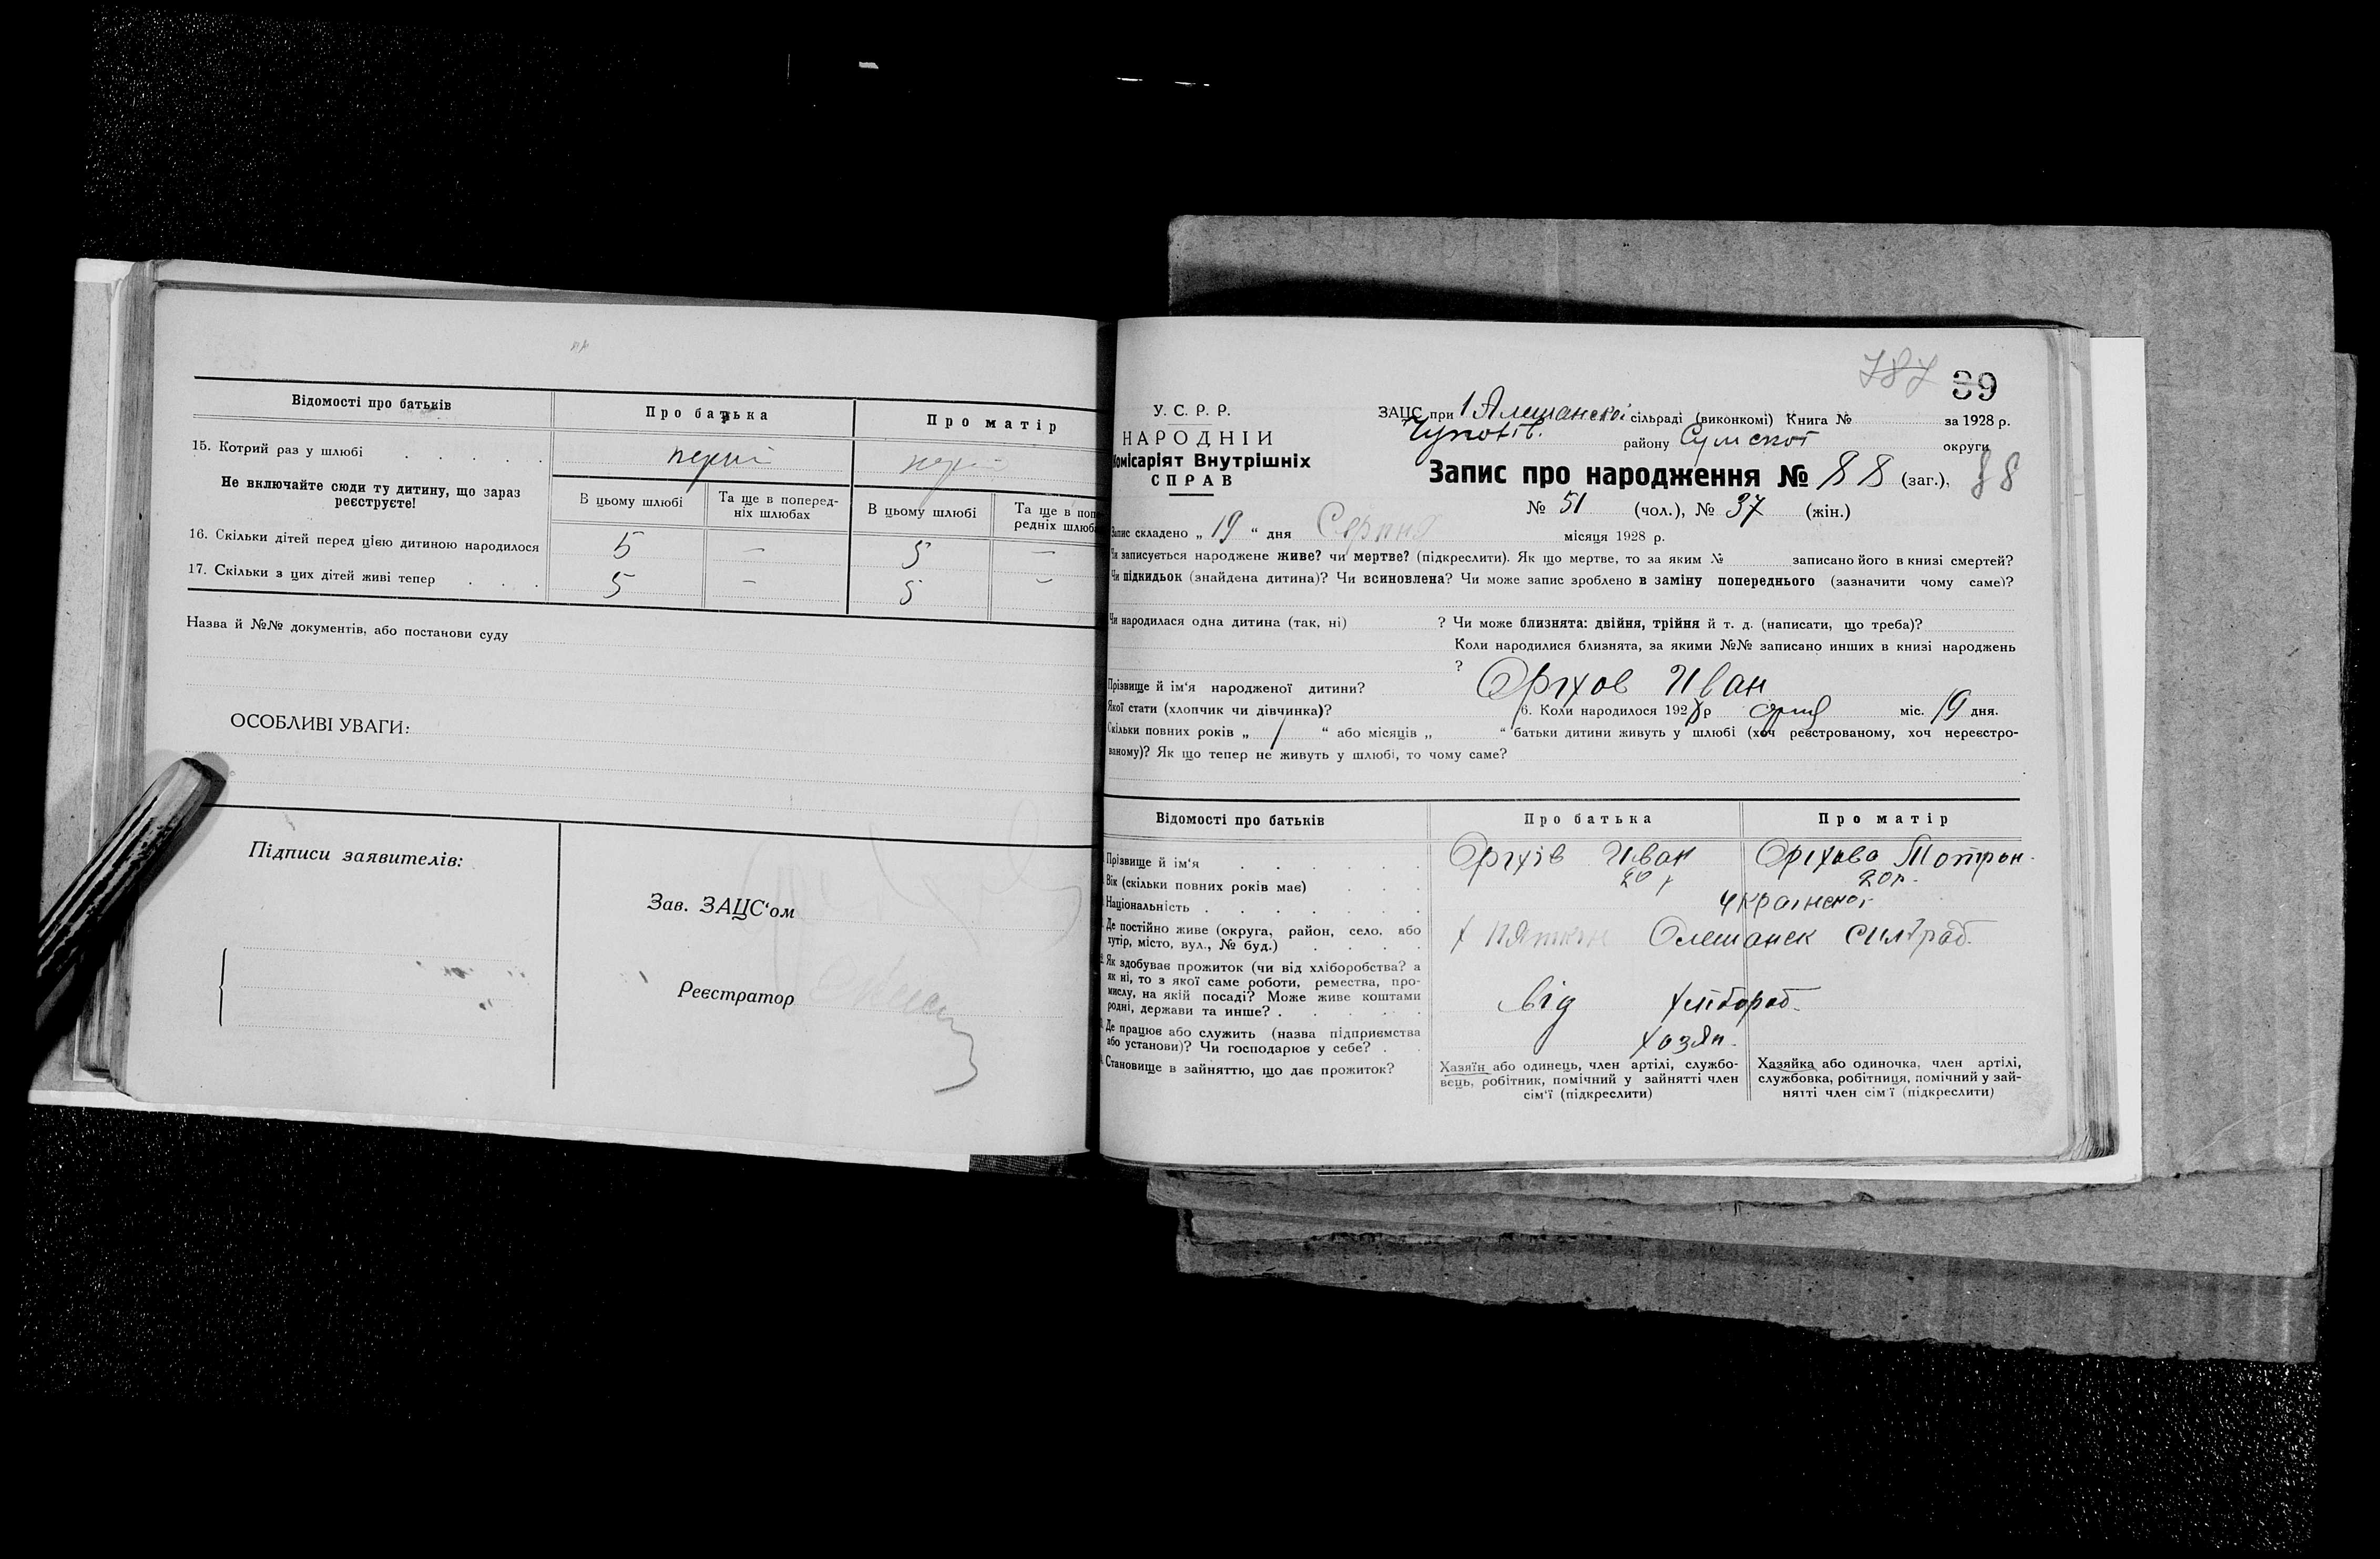 Відомості про батьків
Про батька
Про матір
15. Котрий раз у шлюбі
перший
Не включайте сюди ту дитину, що зараз реєструєте!
В цьому шлюбі
Та ще в поперед-
ніх шлюбах
В цьому шлюбі
Та ще в попе-
редніх шлюб
16. Скільки дітей перед цією дитиною народилося
5 — 5 —
17. Скільки з цих дітей живі тепер
5 — 5 —
Назва й №№ документів, або постанови суду
ОСОБЛИВІ УВАГИ:
Підписи заявителів:
Зав. ЗАЦС'ом
Реєстратор
787 39
У. С. Р. Р.
НАРОДНІЙ
Комісаріят Внутрішніх
СПРАВ
ЗАЦС при 1 Алешанской сільраді (виконкомі) Книга № за 1928 р.
району Сумской округи
Запис про народження № 88 (заг.), 88
№ 51 (чол.), № 37 (жін.)
Запис складено „ 19 " дня Серпня місяця 1928 р.
Чи записується народжене живе? чи мертве? (підкреслити). Як що мертве, то за яким № записано його в книзі смертей?
Чи підкидьок (знайдена дитина)? Чи всиновлена? Чи може запис зроблено в заміну попереднього (зазначити чому саме)?
Чи народилася одна дитина (так, ні) ? Чи може близнята: двійня, трійня й т. д. (написати, що треба)?
Коли народилися близнята, за якими №№ записано инших в книзі народжень
?
Прізвище й ім'я народженої дитини? Оріхов Иван
Якої стати (хлопчик чи дівчинка)? 6. Коли народилося 1928 р міс. 19 дня.
Скільки повних років „ 1 " або місяців „ " батьки дитини живуть у шлюбі (хоч реєстрованому, хоч нереєстро-
ваному)? Як що тепер не живуть у шлюбі, то чому саме?
Відомості про батьків
Про батька
Про матір
Прізвище й ім'я
Оріхів Иван
Оріхова Мотрон.
Вік (скільки повних років має)
20 р
20 р.
Національність
Українской
Де постійно живе (округа, район, село, або
хутір, місто, вул., № буд.)
х Олешанск силрад.
Як здобуває прожиток (чи від хліборобства? а
як ні, то з якої саме роботи, ремества, про-
мислу, на якій посаді? Може живе коштами
родні, держави та инше?
Від хлібороб.
Де працює або служить (назва підприємства
або установи)? Чи господарює у себе?
хозяи.
Становище в зайняттю, що дає прожиток?
Хазяїн або одинець, член артілі, службо-
вець, робітник, помічний у зайнятті член
сім'ї (підкреслити)
Хазяйка або одиночка, член артілі,
службовка, робітниця, помічний у зай-
нятті член сім'ї (підкреслити)